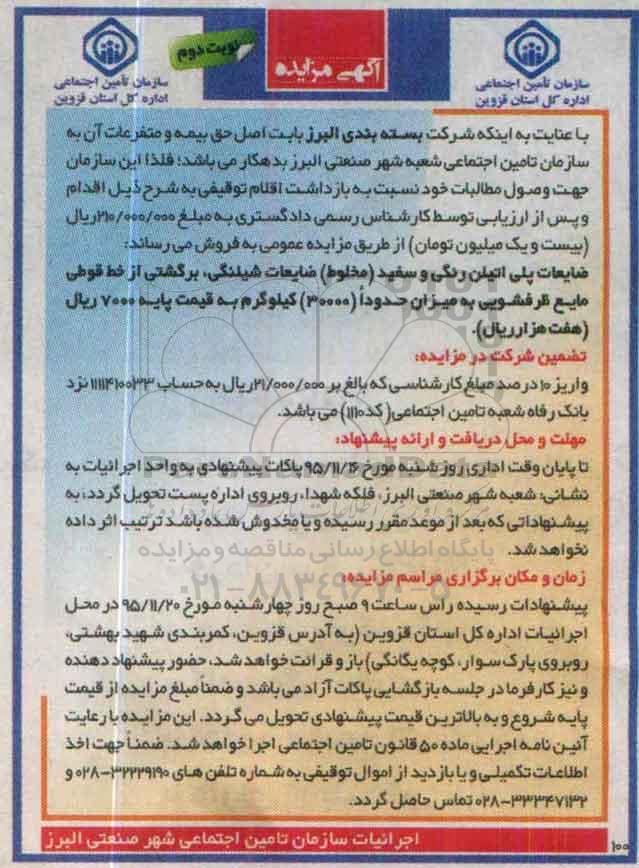 آگهی مزایده
نوبت دوم
سازمان تأمین اجتماعی
اداره کل استان قزوین
سازمان تأمین اجتماعی
اداره کل استان قزوین
با عنایت به اینکه شرکت بسته بندی البرز بابت اصل حق بیمه و متفرعات آن به
سازمان تامین اجتماعی شعبه شهر صنعتی البرز بدهکار می باشد؛ فلذا این سازمان
جهت وصول مطالبات خود نسبت به بازداشت اقلام توقیفی به شرح ذیل اقدام
و پس از ارزیابی توسط کارشناس رسمی دادگستری به مبلغ ۲۱۰/۰۰۰/۰۰۰ریال
(بیست و یک میلیون تومان) از طریق مزایده عمومی به فروش می رساند:
ضایعات پلی اتیلن رنگی و سفید (مخلوط) ضایعات شیلنگی، برگشتی از خط قوطی
مایع ظرفشویی به میزان حدوداً (۳۰۰۰۰) کیلوگرم به قیمت پایه ۷۰۰۰ ریال
(هفت هزار ریال).
تضمین شرکت در مزایده:
واریز ۱۰ درصد مبلغ کارشناسی که بالغ بر ۲۱/۰۰۰/۰۰۰ریال به حساب ۱۱۱۱۴۱۰۰۳۳ نزد
بانک رفاه شعبه تامین اجتماعی( کد۱۱۱۰) می باشد.
مهلت و محل دریافت و ارائه پیشنهاد:
تا پایان وقت اداری روز شنبه مورخ ۹۵/۱۱/۱۶ پاکات پیشنهادی به واحد اجرائیات به
نشانی: شعبه شهر صنعتی البرز، فلکه شهدا، روبروی اداره پست تحویل گردد، به
پیشنهاداتی که بعد از موعد مقرر رسیده و یا مخدوش شده باشد ترتیب اثر داده
نخواهد شد.
زمان و مکان برگزاری مراسم مزایده:
پیشنهادات رسیده راس ساعت ۹ صبح روز چهارشنبه مورخ ۹۵/۱۱/۲۰ در محل
اجرائیات اداره کل استان قزوین (به آدرس قزوین، کمربندی شهید بهشتی،
روبروی پارک سوار، کوچه یگانگی) باز و قرائت خواهد شد، حضور پیشنهاد دهنده
و نیز کارفرما در جلسه بازگشایی پاکات آزاد می باشد و ضمناً مبلغ مزایده از قیمت
پایه شروع و به بالاترین قیمت پیشنهادی تحویل می گردد. این مزایده با رعایت
آئین نامه اجرایی ماده ۵۰ قانون تامین اجتماعی اجرا خواهد شد. ضمناً جهت اخذ
اطلاعات تکمیلی و یا بازدید از اموال توقیفی به شماره تلفن های ۳۲۲۲۹۱۹۰-۰۲۸ و
۳۳۳۴۷۱۳۲-۰۲۸ تماس حاصل گردد.
اجرائیات سازمان تامین اجتماعی شهر صنعتی البرز
۱۰۰
پایگاه اطلاع رسانی مناقصه و مزایده
۰۲۱-۸۸۳۴۹۶۷۰-۵